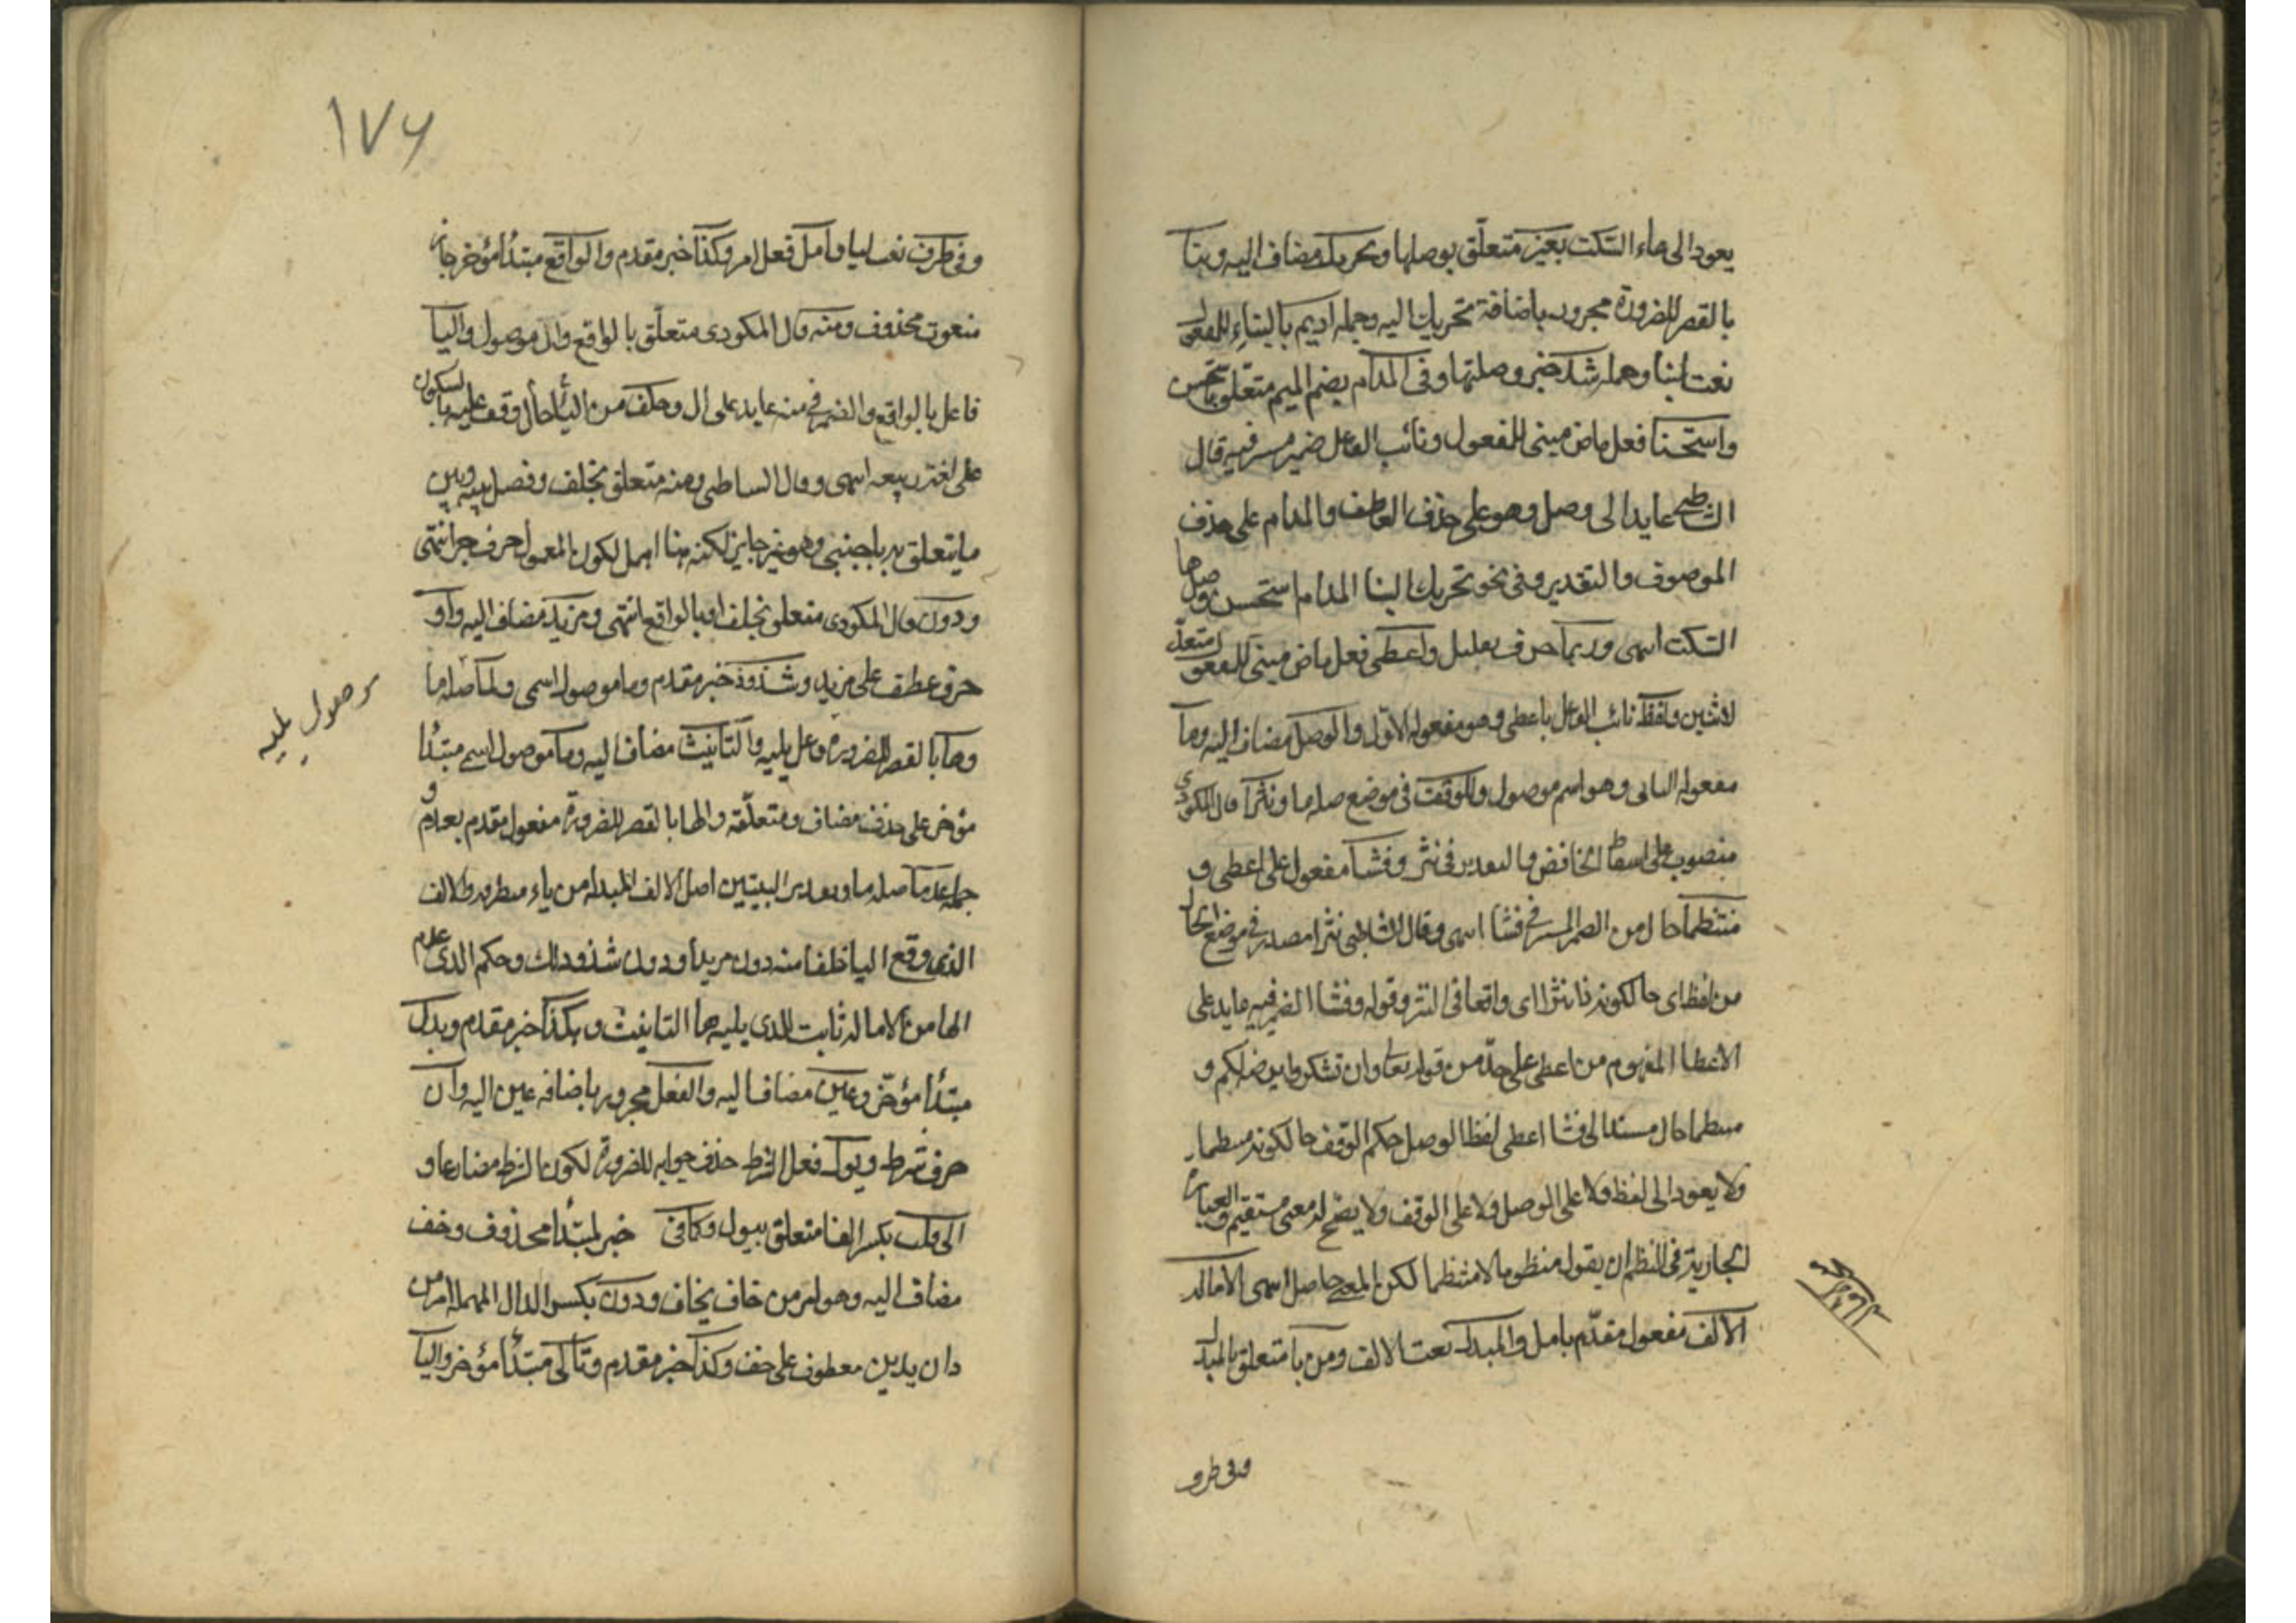 يعود الى هاء السكت بغير متعلق بوصلها وتحريك مضاف اليه وبنا
بالقصر للضرورة مجرور باضافة تحريك اليه وجملة اديم بالبناء للمفعول
نعت لبنا وجملة شذ خبر وصلها وفى المدام بضم الميم متعلق باستحسن
واستحسنا فعل ماض مبنى للمفعول ونائب الفاعل ضمير مستتر فيه قال
الشاطبي عايد الى وصل وهو على حذف العاطف والمدام على حذف
الموصوف والتقدير وفى نحو تحريك البنا المدام استحسن وصل ها
السكت انتهى وربما حرف تقليل واعطى فعل ماض مبنى للمفعول متعد
لاثنين ولفظ نائب الفاعل باعطى وهو مفعوله الاول والوصل مضاف اليه وما
مفعوله الثانى وهو اسم موصول وللوقف فى موضع صلة ما ونثرا قال المكودى
منصوب على اسقاط الخافض والتقدير فى نثر وفشا مفعول على اعطى و
منتظما حال من الضمير المستتر فى فشا انتهى وقال الشاطبى نثرا مصدر فى موضع الحال
من لفظ اى حالكونه ذا نثر اى واقعا فى النثر وقوله وفشا الضمير فيه عايد على
الاعطا المفهوم من اعطى على حد من قوله تعا وان تشكروا يرضه لكم و
منتظما حال مستندا الى فشا اعطى لفظ الوصل حكم الوقف حالكونه منتظما
ولا يعود الى لفظ ولا على الوصل ولا على الوقف ولا يصح له معنى مستقيم والعبارة
الجارية فى النظم ان يقول منظوما لا منتظما لكن المعنى حاصل انتهى الامالة
الالف مفعول مقدم بامل والمبدل نعت الالف ومن يا متعلق بالمبدل
وفى طرف
١٧٦
وفى طرف نعت ليا وامل فعل امر وكذا خبر مقدم والواقع مبتدأ مؤخر جار
منعوت محذوف ومنه قال المكودى متعلق بالواقع وال موصول واليا
فاعل بالواقع والضمير فى منه عايد على ال وخلف من اليا حال وقف عليه بالسكون
على لغة ربيعة انتهى وقال الشاطبى ومنه متعلق بخلف وفصل بينه وبين
ما يتعلق به باجنبى وهو غير جايز لكنه هنا اسهل لكون المعمول حرف جر انتهى
ودون قال المكودى متعلق بخلف او بالواقع انتهى ومزيد مضاف اليه واو
حرف عطف على مزيد وشذوذ خبر مقدم وما موصول اسمى ولما صلة ما
وها بالقصر للضرورة فاعل يليه والتانيث مضاف اليه وما موصول اسمى مبتدأ
مؤخر على حذف مضاف ومتعلقه والها بالقصر للضرورة مفعول مقدم بعدم و
جملة عدما صلة ما وتقدير البيتين امل الالف المبدلة من ياء متطرفه والالف
الذى وقع اليا خلفا منه دون مزيد او دون شذوذ ذلك وحكم الذى عدم
الها من الامالة ثابت للذى يليه ها التانيث وهكذا خبر مقدم وبدل
مبتدأ مؤخر وعين مضاف اليه والفعل مجرور باضافة عين اليه وان
حرف شرط ويؤل فعل الشرط حذف جوابه للضرورة لكون الشرط مضارعا و
الى فلت بكسر الفا متعلق بيول وكماضى خبر لمبتدأ محذوف وخف
مضاف اليه وهو امر من خاف يخاف ودن بكسر الدال المهملة امر من
دان يدين معطوف على خف وكذا خبر مقدم وتالى مبتدأ مؤخر واليا
موصول يليه